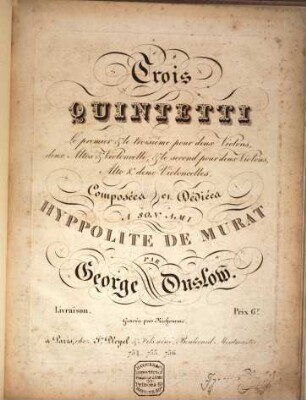 Trois
QUINTETTI
Le premier & le troisième pour deux Violons,
deux Altos & Violoncelle, & le second pour deux Violons,
Alto & deux Violoncelles.
Composées et Dédiées
A SON AMI
HYPPOLITE DE MURAT
PAR
George Onslow.
Livraison. Prix 6f
Gravés par Richomme.
à Paris, chez Ig. Pleyel & Fils aîné, Boulevard Montmartre